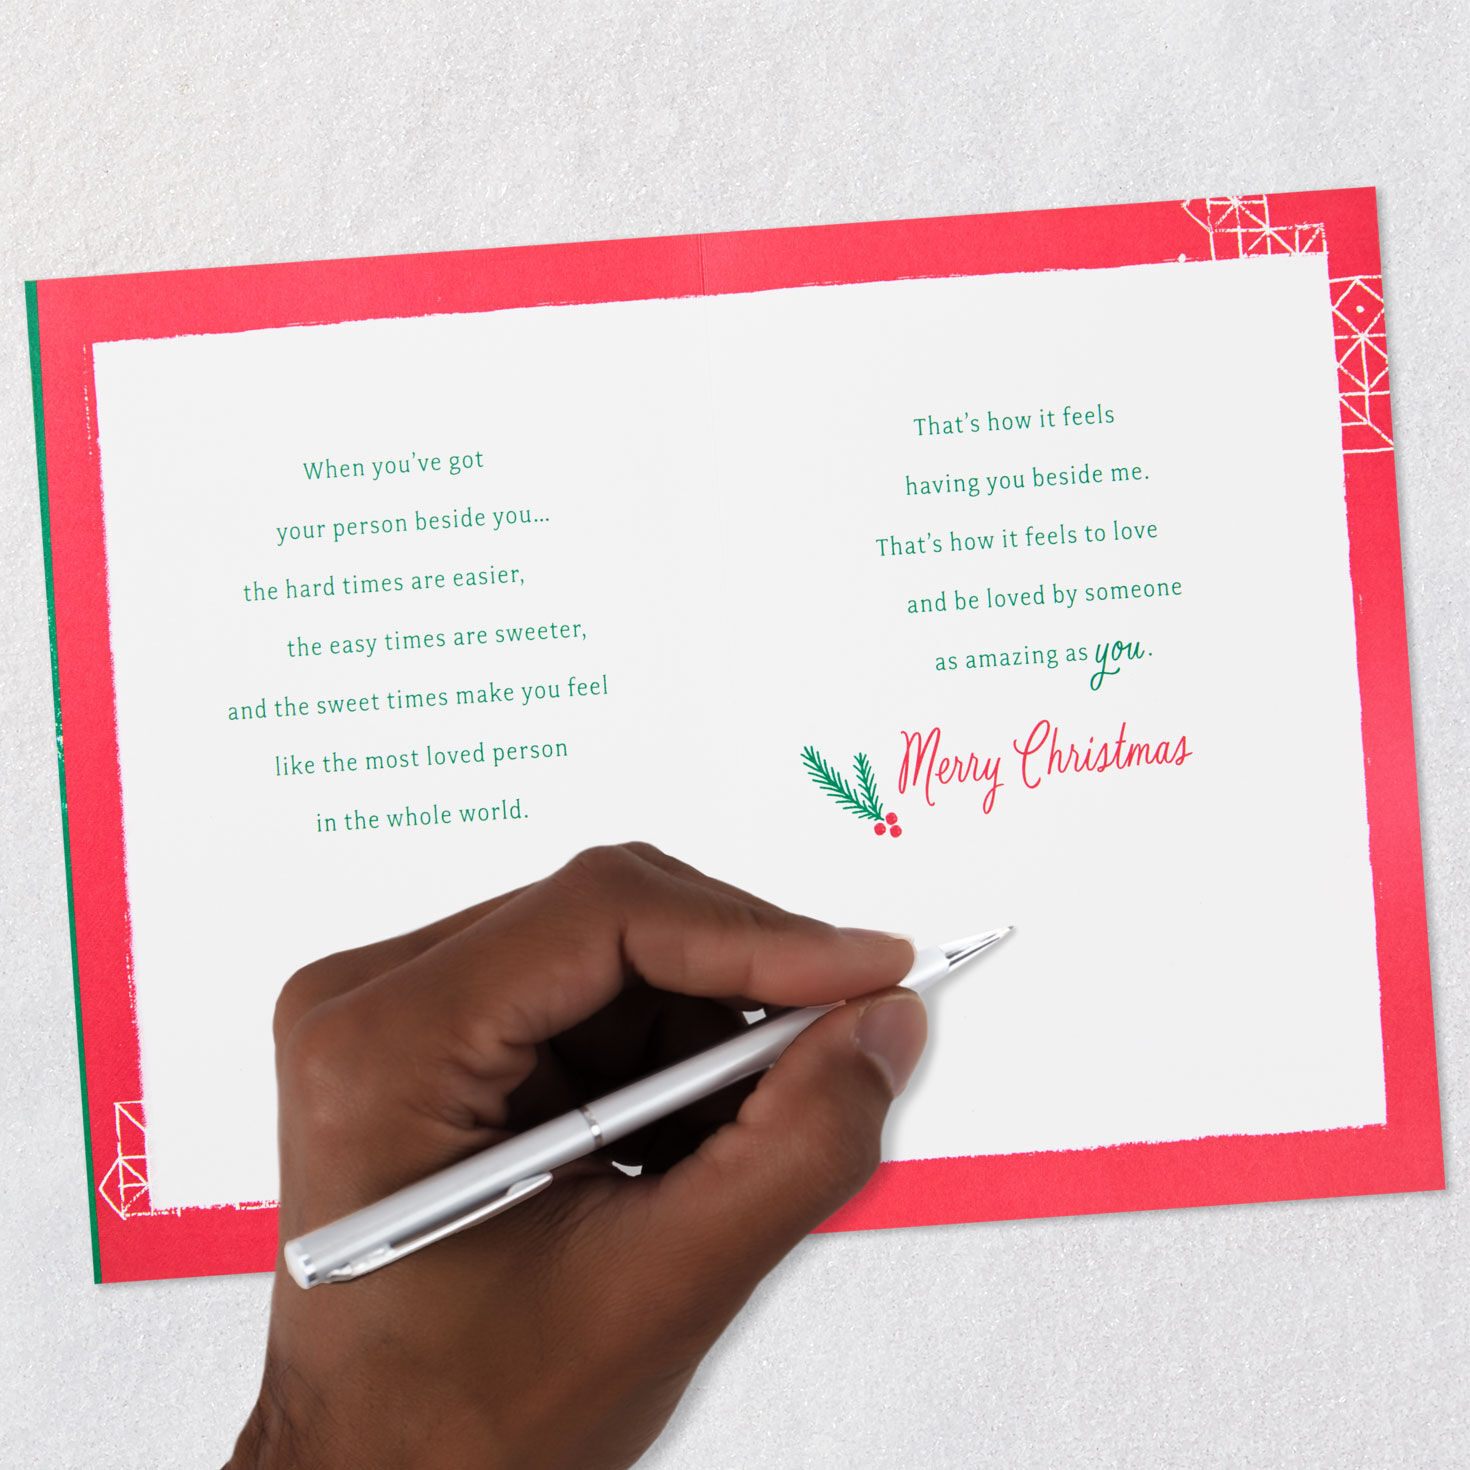 When you've got
your person beside you...
the hard times are easier,
the easy times are sweeter,
and the sweet times make you feel
like the most loved person
in the whole world.
That's how it feels
having you beside me.
That's how it feels to love
and be loved by someone
as amazing as you.
Merry Christmas